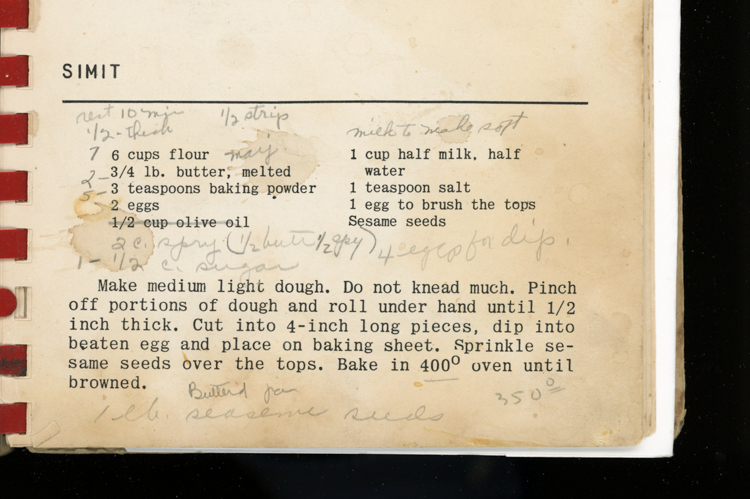 SIMIT
rest 10 min 1/2 strip
1/2 - thick milk to make soft
7 6 cups flour 1 cup half milk, half
2- 3/4 lb. butter, melted water
5- 3 teaspoons baking powder 1 teaspoon salt
2 eggs 1 egg to brush the tops
1/2 cup olive oil Sesame seeds
2 c. spry (1/2 butt 1/2 spy) 4 eggs for dip.
1 - 1/2 c. sugar
Make medium light dough. Do not knead much. Pinch
off portions of dough and roll under hand until 1/2
inch thick. Cut into 4-inch long pieces, dip into
beaten egg and place on baking sheet. Sprinkle se-
same seeds over the tops. Bake in 400º oven until
browned.
Butterd pan 350º
1 lb. seaseme seeds